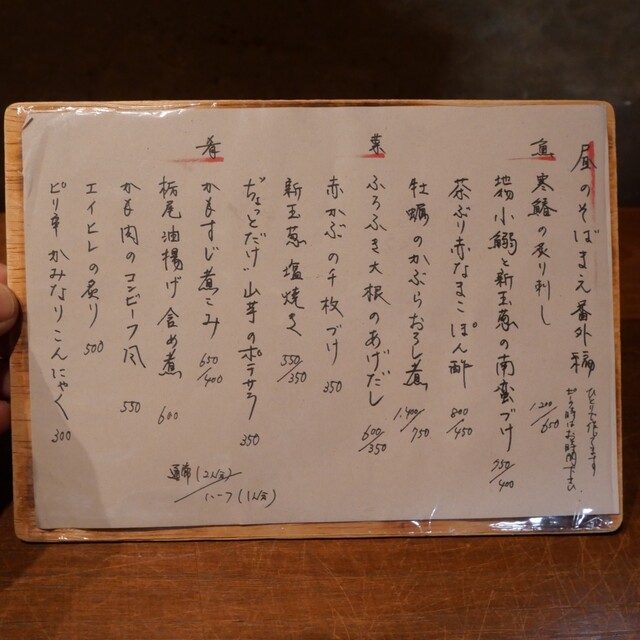 昼のそばまえ番外編
ひとりで作ってます
お時間下さい
寒鰆の炙り刺し 1.200/650
地物小鰯と新玉葱の南蛮づけ 750/400
茶ぶり赤なまこぽん酢 800/450
牡蠣のかぶらおろし煮 1.400/750
菜
ふろふき大根のあげだし 600/350
赤かぶの千枚づけ 350
新玉葱塩焼き 550/350
“ちょっとだけ”山芋のポテサラ 350
肴
かもすじ煮こみ 650/400
栃尾油揚げ含め煮 600
かも肉のコンビーフ風 550
エイヒレの炙り 500
ピリ辛かみなりこんにゃく 300
通常(2人分)/ハーフ(1人分)